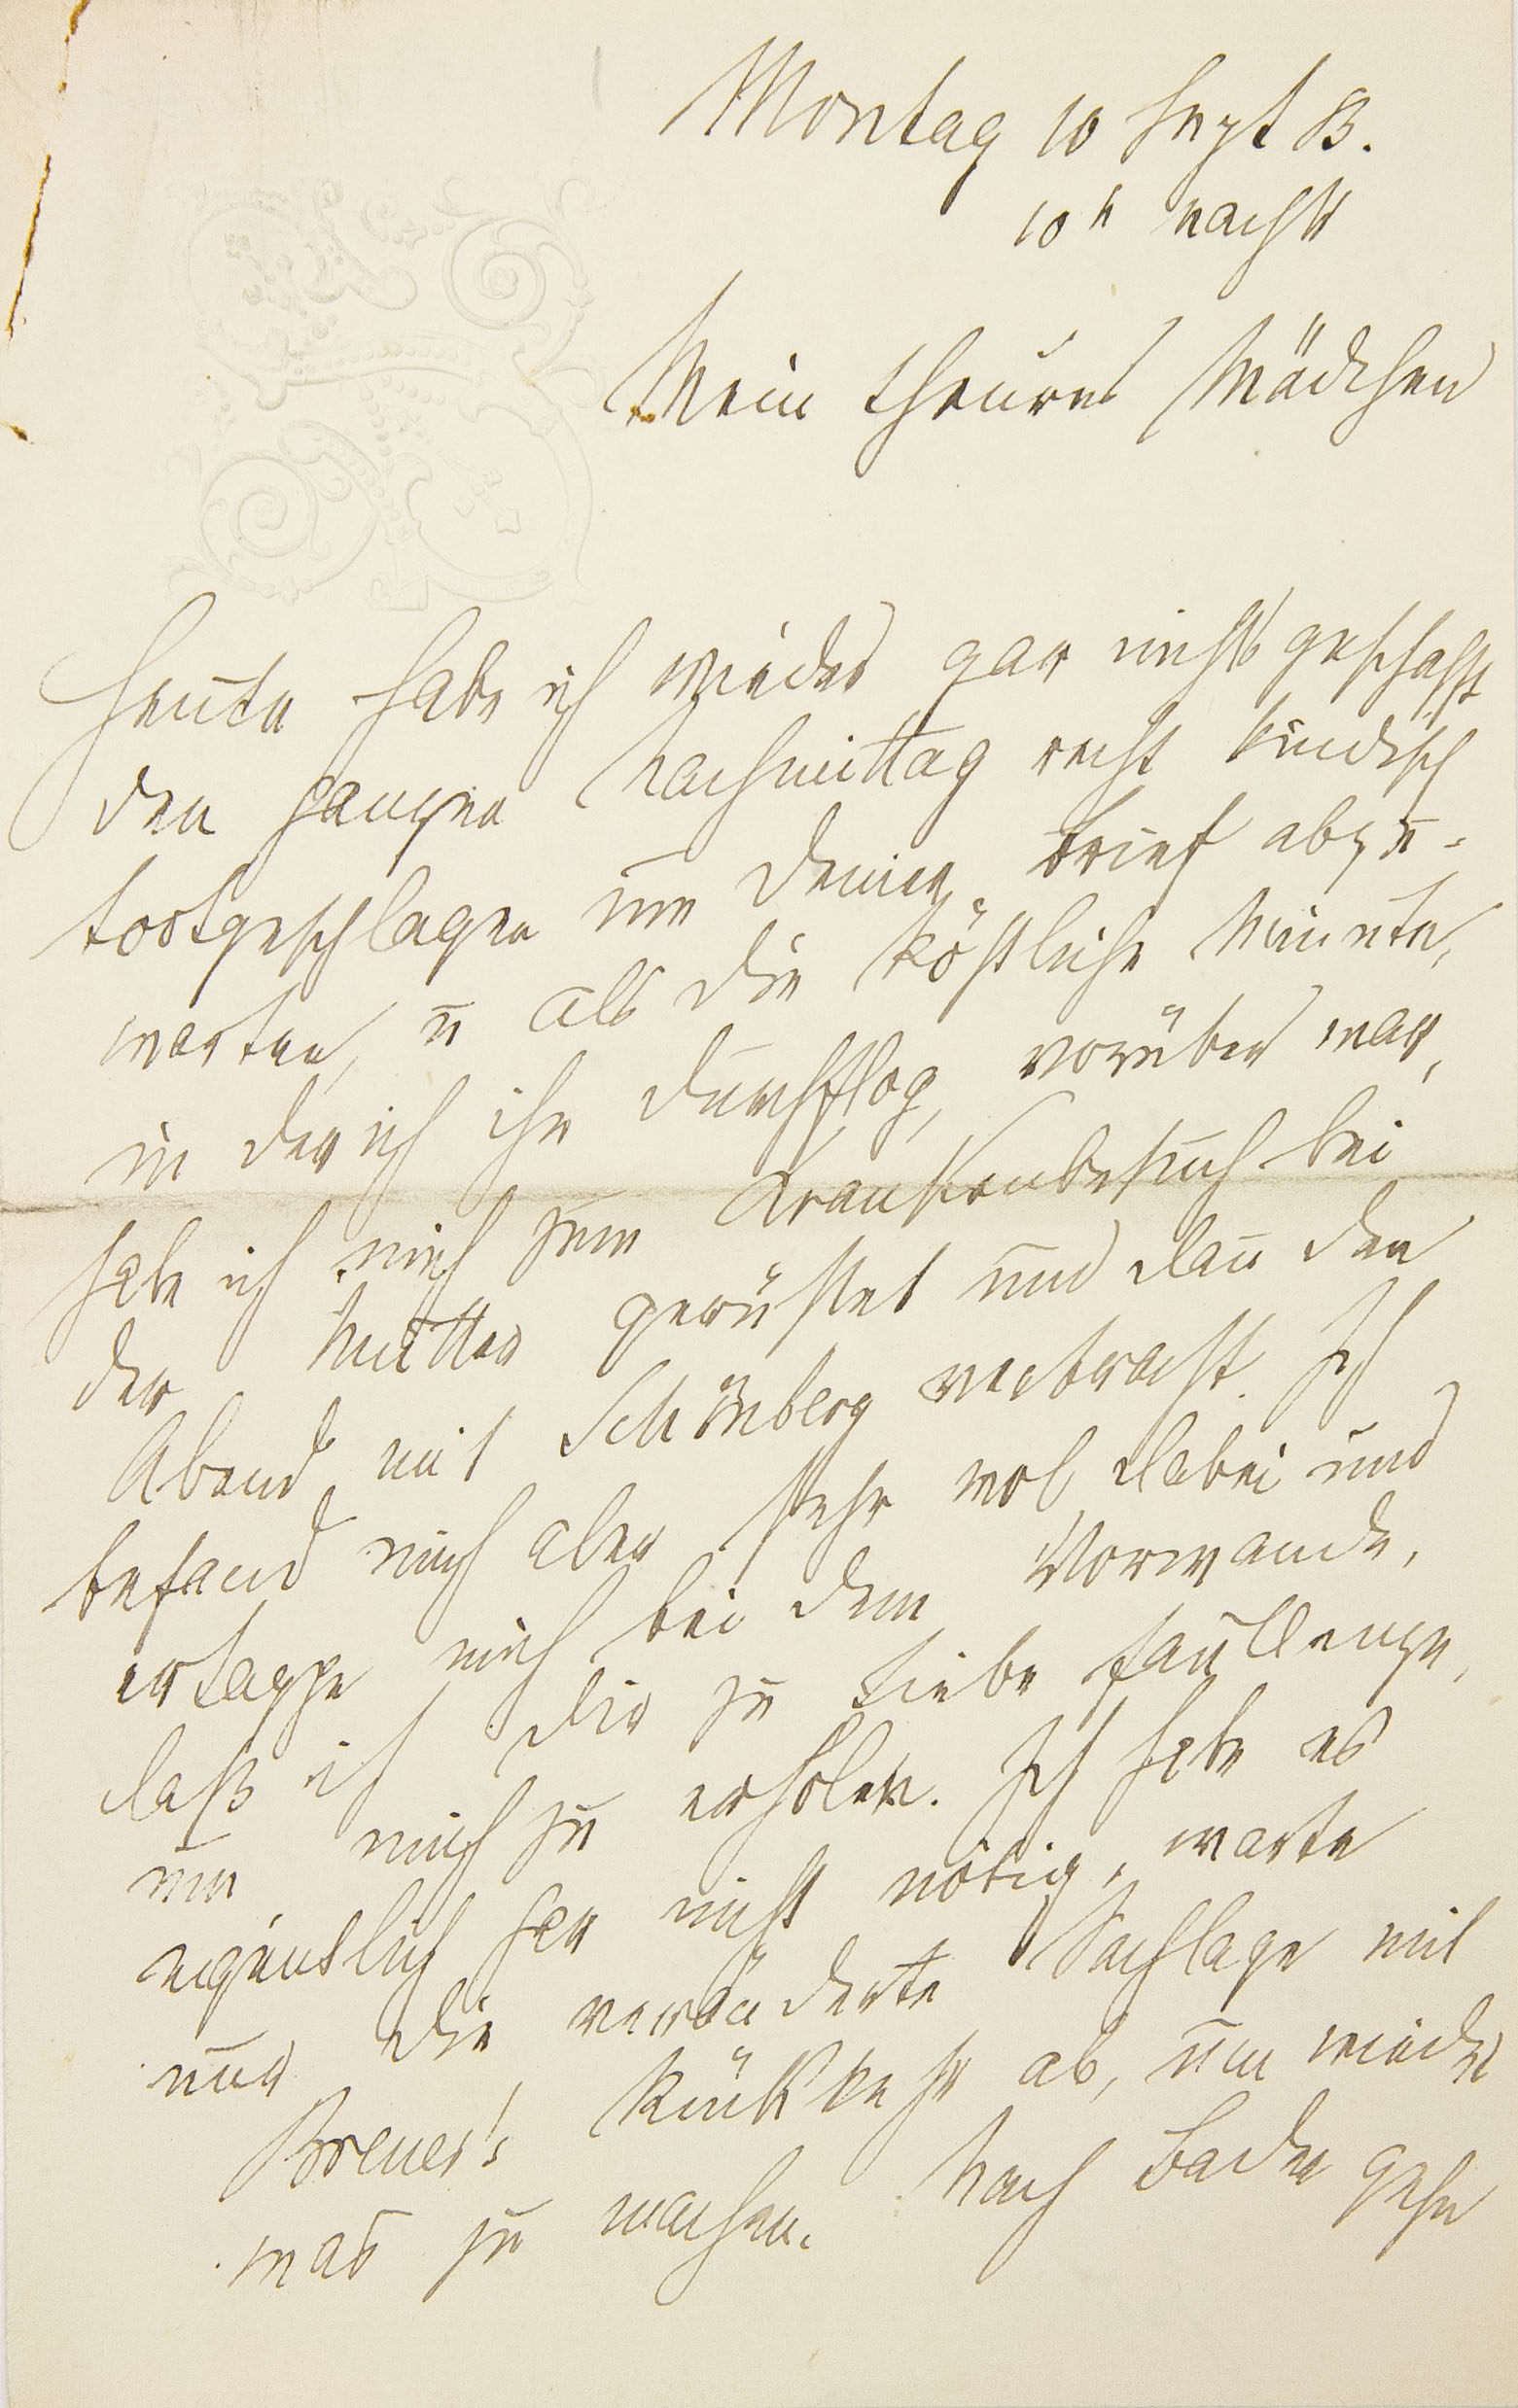 Montag 10 Sept 83.
10 h nachts
Mein theures Mädchen
Heute habe ich wieder gar nichts geschafft
den ganzen Nachmittag recht kindisch
todtgeschlagen um Deinen Brief abzu-
warten, u als die köstliche Minute,
in der ich ihn durchflog, vorüber war,
habe ich mich zum Krankenbesuch bei
der Mutter gerüstet und dann den
Abend mit Schönberg verbracht. Ich
befand mich aber sehr wol dabei und
ertappe mich bei dem Vorwande,
daß ich Dir zu Liebe faullenze,
um mich zu erholen. Ich habe es
eigentlich gar nicht nötig, warte
nur die veränderte Sachlage mit
Breuer's Rückkehr ab, um wieder
was zu machen. Nach Baden gehe